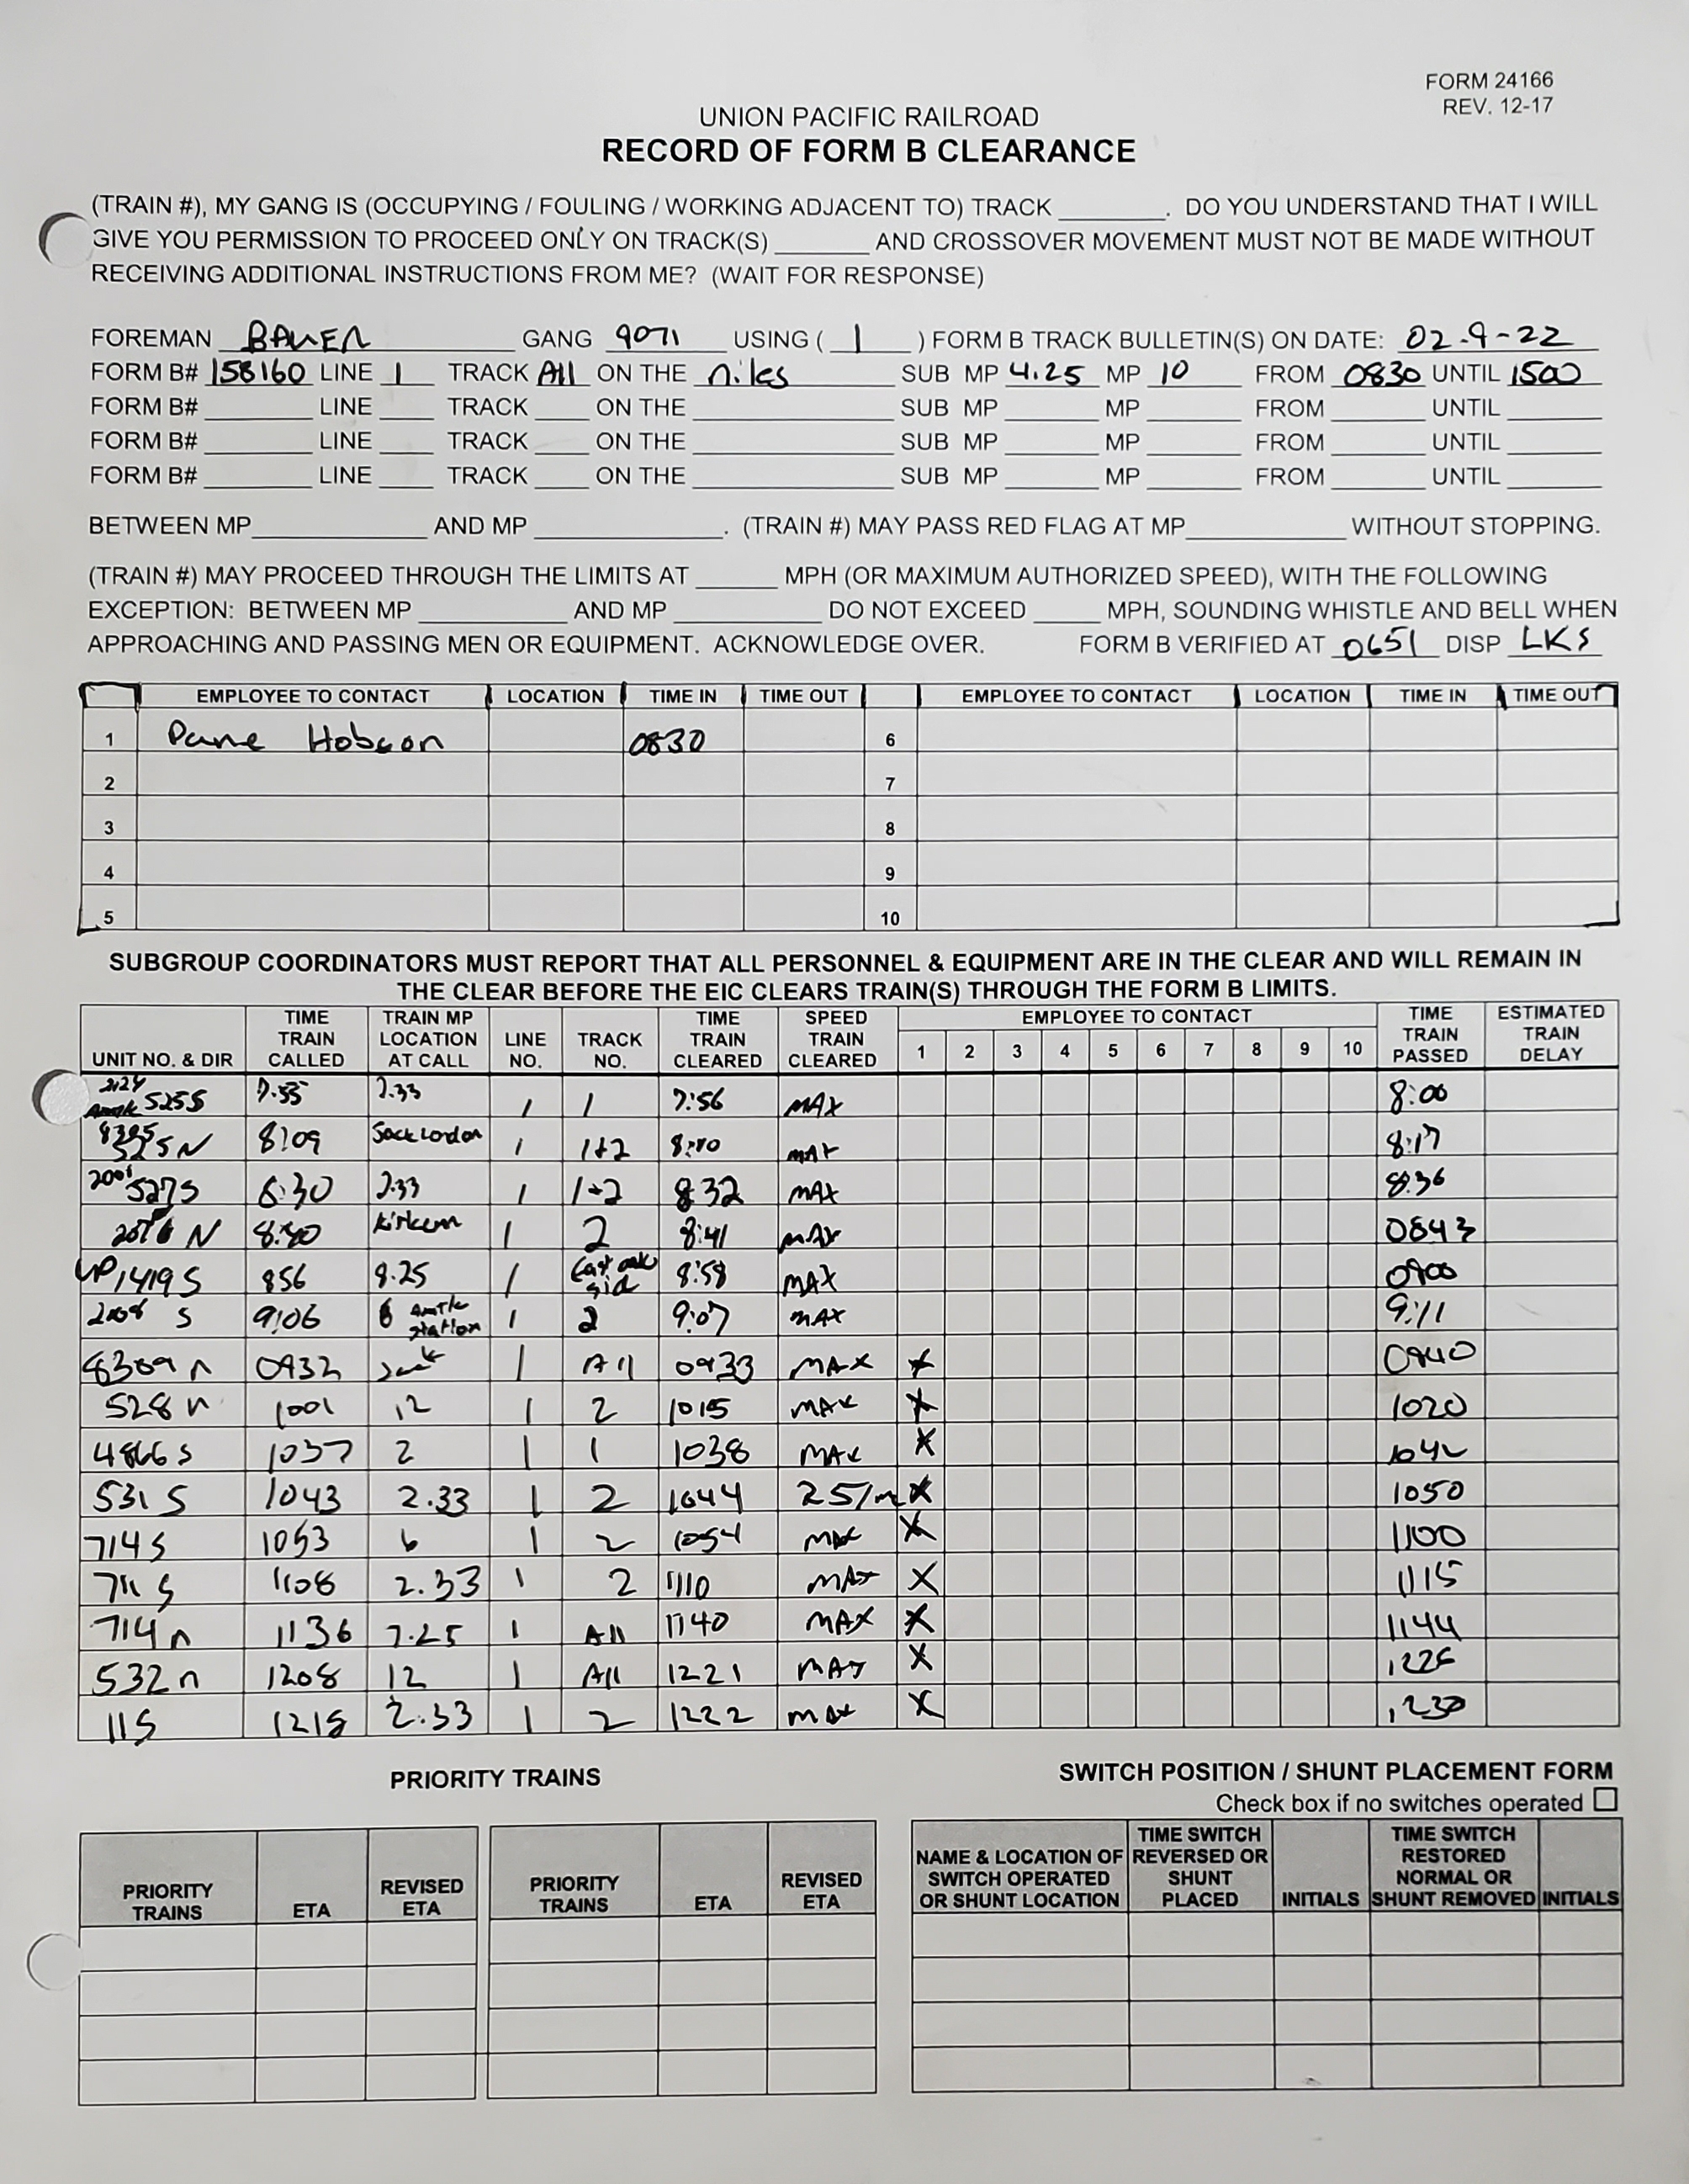 FORM 24166
REV. 12-17
UNION PACIFIC RAILROAD
RECORD OF FORM B CLEARANCE
(TRAIN #), MY GANG IS (OCCUPYING / FOULING / WORKING ADJACENT TO) TRACK ________. DO YOU UNDERSTAND THAT I WILL
GIVE YOU PERMISSION TO PROCEED ONLY ON TRACK(S) _______ AND CROSSOVER MOVEMENT MUST NOT BE MADE WITHOUT
RECEIVING ADDITIONAL INSTRUCTIONS FROM ME? (WAIT FOR RESPONSE)
FOREMAN GANG 9071 USING ( 1 ) FORM B TRACK BULLETIN(S) ON DATE: 02-9-22
FORM B# 158160 LINE 1 TRACK All ON THE niles SUB MP 4.25 MP 10 FROM 0830 UNTIL 1500
FORM B# LINE TRACK ON THE SUB MP MP FROM UNTIL
FORM B# LINE TRACK ON THE SUB MP MP FROM UNTIL
FORM B# LINE TRACK ON THE SUB MP MP FROM UNTIL
BETWEEN MP AND MP . (TRAIN #) MAY PASS RED FLAG AT MP WITHOUT STOPPING.
(TRAIN #) MAY PROCEED THROUGH THE LIMITS AT MPH (OR MAXIMUM AUTHORIZED SPEED), WITH THE FOLLOWING
EXCEPTION: BETWEEN MP AND MP DO NOT EXCEED MPH, SOUNDING WHISTLE AND BELL WHEN
APPROACHING AND PASSING MEN OR EQUIPMENT. ACKNOWLEDGE OVER. FORM B VERIFIED AT 0651 DISP LKS
EMPLOYEE TO CONTACT LOCATION TIME IN TIME OUT EMPLOYEE TO CONTACT LOCATION TIME IN TIME OUT
1 Hobson 0830 6
2 7
3 8
4 9
5 10
SUBGROUP COORDINATORS MUST REPORT THAT ALL PERSONNEL & EQUIPMENT ARE IN THE CLEAR AND WILL REMAIN IN
THE CLEAR BEFORE THE EIC CLEARS TRAIN(S) THROUGH THE FORM B LIMITS.
UNIT NO. & DIR TIME TRAIN CALLED TRAIN MP LOCATION AT CALL LINE NO. TRACK NO. TIME TRAIN CLEARED SPEED TRAIN CLEARED EMPLOYEE TO CONTACT 1 2 3 4 5 6 7 8 9 10 TIME TRAIN PASSED ESTIMATED TRAIN DELAY
2124 Amtk 525S 7:55 2.33 1 1 7:56 MAX 8:00
N 8:09 1 1+2 8:10 MAX 8:17
527S 8:30 2.33 1 1+2 832 MAX 8:36
N 8:40 1 2 8:41 MAX 0843
UP 1419 S 856 8.25 1 8:58 MAX 0900
S 9:06 Amtk station 1 2 9:07 MAX 9:11
8309 n 0932 1 All 0933 MAX X 0940
528 n 1001 12 1 2 1015 MAX X 1020
4866 S 1037 2 1 1 1038 MAX X 1042
531 S 1043 2.33 1 2 1044 X 1050
714 S 1053 6 1 2 1054 MAX X 1100
711 S 1108 2.33 1 2 1110 MAX X 1115
714 n 1136 7.25 1 All 1140 MAX X 1144
532 n 1208 12 1 All 1221 MAX X
11S 1218 2.33 1 2 1222 max X 1230
PRIORITY TRAINS
SWITCH POSITION / SHUNT PLACEMENT FORM
Check box if no switches operated
PRIORITY TRAINS ETA REVISED ETA PRIORITY TRAINS ETA REVISED ETA NAME & LOCATION OF SWITCH OPERATED OR SHUNT LOCATION TIME SWITCH REVERSED OR SHUNT PLACED INITIALS TIME SWITCH RESTORED NORMAL OR SHUNT REMOVED INITIALS